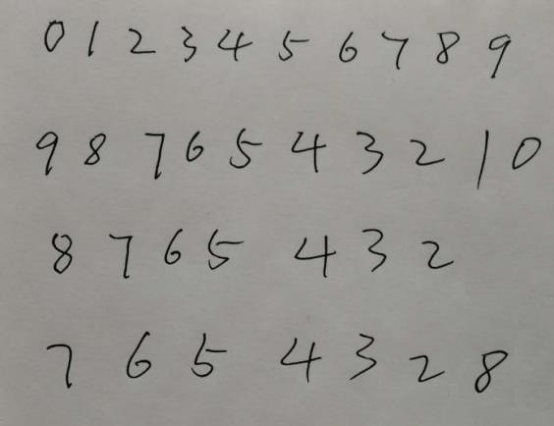 0 1 2 3 4 5 6 7 8 9
9 8 7 6 5 4 3 2 1 0
8 7 6 5 4 3 2
7 6 5 4 3 2 8